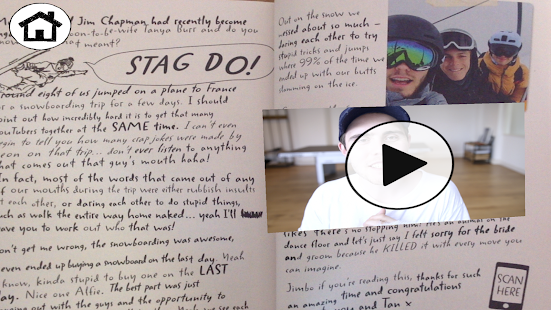 Jim Chapman had recently become
soon-to-be-wife Tanya Burr and do you
that meant?
STAG DO!
round eight of us jumped on a plane to France
for a snowboarding trip for a few days. I should
point out how incredibly hard it is to get that many
YouTubers together at the SAME time. I can't even
begin to tell you how many clap jokes were made by
eon on that trip... don't ever listen to anything
that comes out that guy's mouth haha!
In fact, most of the words that came out of any
of our mouths during the trip were either rubbish insults
at each other, or daring each other to do stupid things,
such as walk the entire way home naked... yeah I'll
leave you to work out who that was!
Don't get me wrong, the snowboarding was awesome,
even ended up buying a snowboard on the last day. Yeah
I know, kinda stupid to buy one on the LAST
day. Nice one Alfie. The best part was just
hanging out with the guys and the opportunity to
Out on the snow we
messed about so much -
daring each other to try
stupid tricks and jumps
where 99% of the time we
ended up with our butts
slamming on the ice.
likes there's no stopping him! He's an animal on the
dance floor and let's just say I felt sorry for the bride
and groom because he KILLED it with every move you
can imagine.
Jimbo if you're reading this, thanks for such
an amazing time and congratulations
you and Tan x
SCAN
HERE